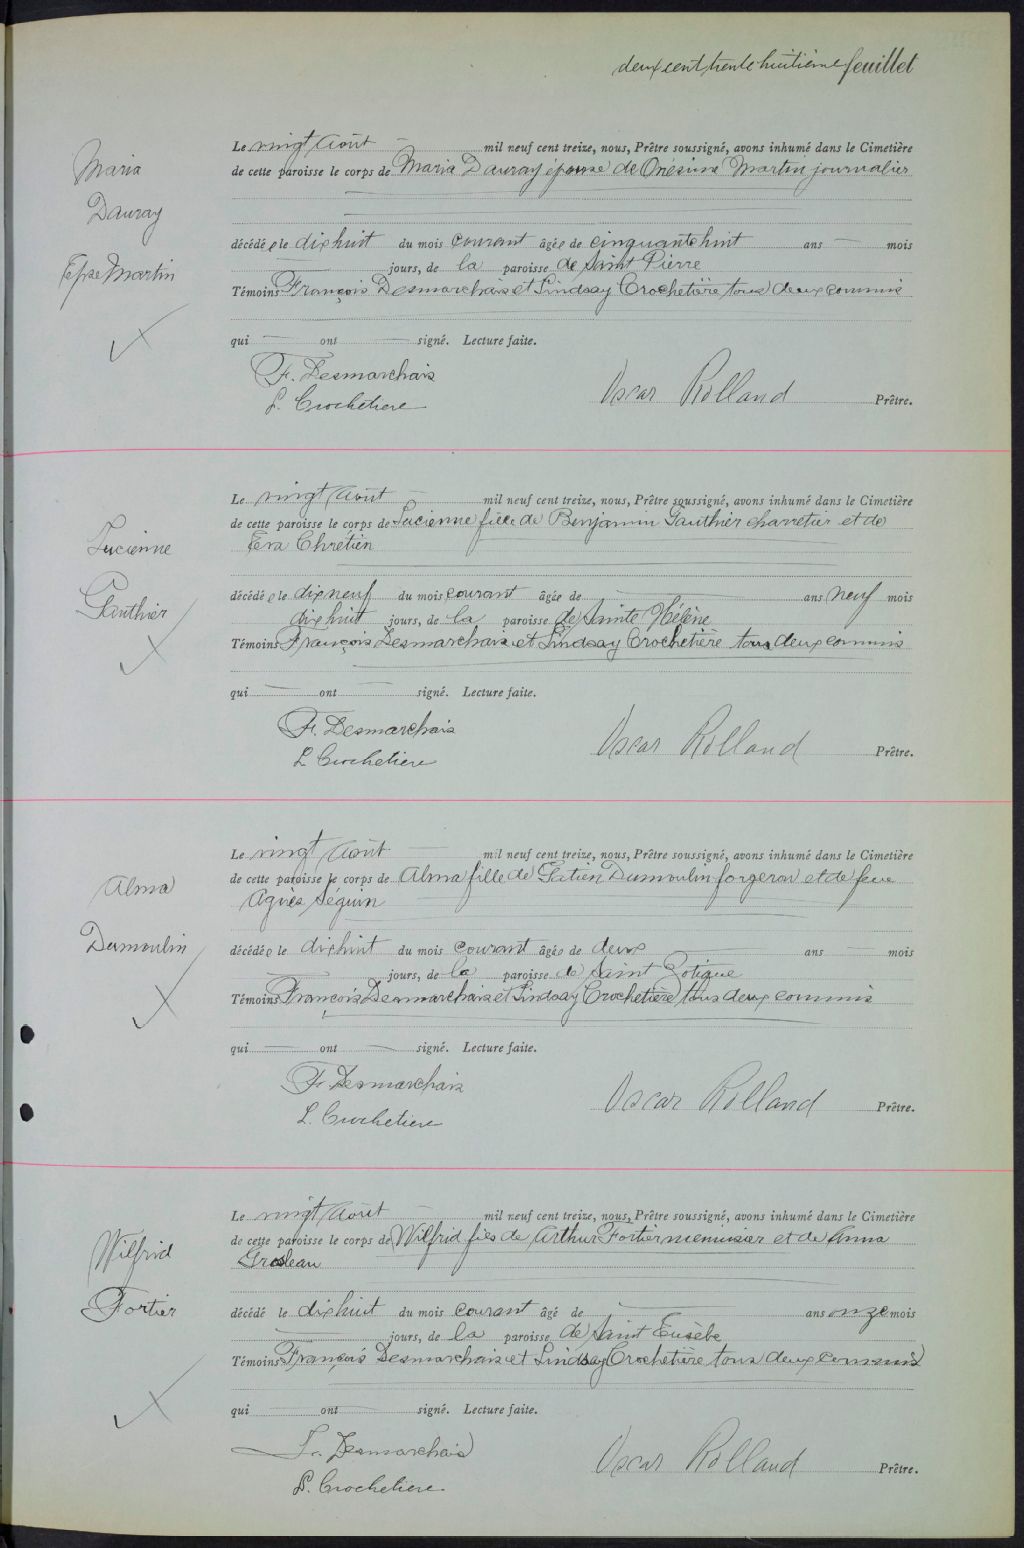 deux cent trente huitième feuillet
Maria
Dauray
Epse Martin
Le vingt Août mil neuf cent treize, nous, Prêtre soussigné, avons inhumé dans le Cimetière
de cette paroisse le corps de Maria Dauray épouse de Onésime Martin journalier
décédée le dixhuit du mois courant âgée de cinquantehuit ans mois
jours, de la paroisse de Saint Pierre
Témoins François Desmarchais et Lindsay Crochetière tous deux commis
qui ont signé. Lecture faite.
F. Desmarchais
L. Crochetiere
Oscar Rolland Prêtre.
Lucienne
Gauthier
Le vingt Août mil neuf cent treize, nous, Prêtre soussigné, avons inhumé dans le Cimetière
de cette paroisse le corps de Lucienne fille de Benjamin Gauthier charretier et de
Eva Chretien
décédée le dixneuf du mois courant âgée de ans neuf mois
dixhuit jours, de la paroisse de Sainte Hélène
Témoins François Desmarchais et Lindsay Crochetière tous deux commis
qui ont signé. Lecture faite.
F. Desmarchais
L Crochetiere
Oscar Rolland Prêtre.
Alma
Dumoulin
Le vingt Août mil neuf cent treize, nous, Prêtre soussigné, avons inhumé dans le Cimetière
de cette paroisse le corps de Alma fille de Gatien Dumoulin forgeron et de feue
Agnès Séguin
décédée le dixhuit du mois courant âgée de deux ans mois
jours, de la paroisse de Saint Zotique
Témoins François Desmarchais et Lindsay Crochetière tous deux commis
qui ont signé. Lecture faite.
F. Desmarchais
L. Crochetiere
Oscar Rolland Prêtre.
Wilfrid
Fortier
Le vingt Août mil neuf cent treize, nous, Prêtre soussigné, avons inhumé dans le Cimetière
de cette paroisse le corps de Wilfrid fils de Arthur Fortier menuisier et de Anna
décédé le dixhuit du mois courant âgé de ans onze mois
jours, de la paroisse de Saint Eusèbe
Témoins François Desmarchais et Lindsay Crochetière tous deux commis
qui ont signé. Lecture faite.
F. Desmarchais
L. Crochetiere
Oscar Rolland Prêtre.